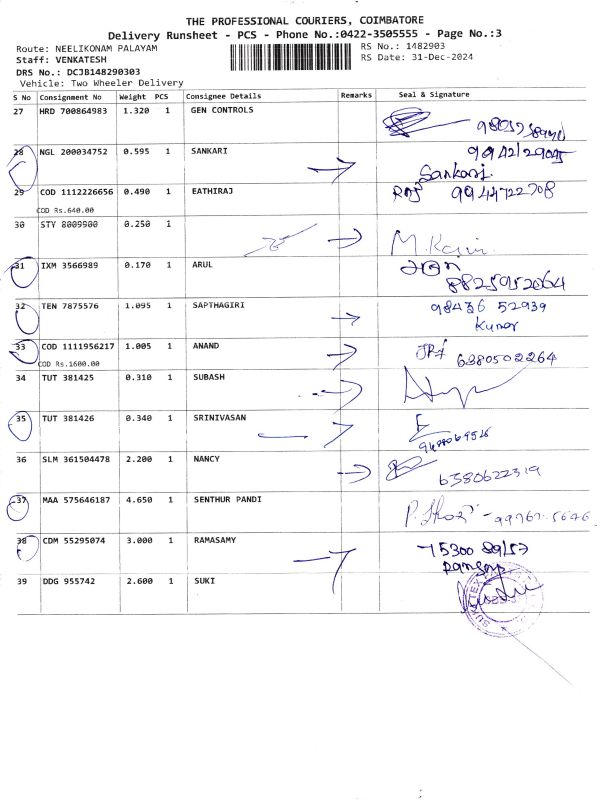 THE PROFESSIONAL COURIERS, COIMBATORE
Delivery Runsheet - PCS - Phone No.:0422-3505555 - Page No.:3
Route: NEELIKONAM PALAYAM RS No.: 1482903
Staff: VENKATESH RS Date: 31-Dec-2024
DRS No.: DCJB148290303
Vehicle: Two Wheeler Delivery
S No Consignment No Weight PCS Consignee Details Remarks Seal & Signature
27 HRD 700864983 1.320 1 GEN CONTROLS
28 NGL 200034752 0.595 1 SANKARI
Sankari
29 COD 1112226656 0.490 1 EATHIRAJ Raj 9944722708
COD Rs.640.00
30 STY 8009900 0.250 1
31 IXM 3566989 0.170 1 ARUL
8825952064
32 TEN 7875576 1.095 1 SAPTHAGIRI 98436 52939
Kumar
33 COD 1111956217 1.005 1 ANAND 6380502264
COD Rs.1600.00
34 TUT 381425 0.310 1 SUBASH
35 TUT 381426 0.340 1 SRINIVASAN
36 SLM 361504478 2.200 1 NANCY
6380622319
37 MAA 575646187 4.650 1 SENTHUR PANDI
38 CDM 55295074 3.000 1 RAMASAMY
39 DDG 955742 2.600 1 SUKI